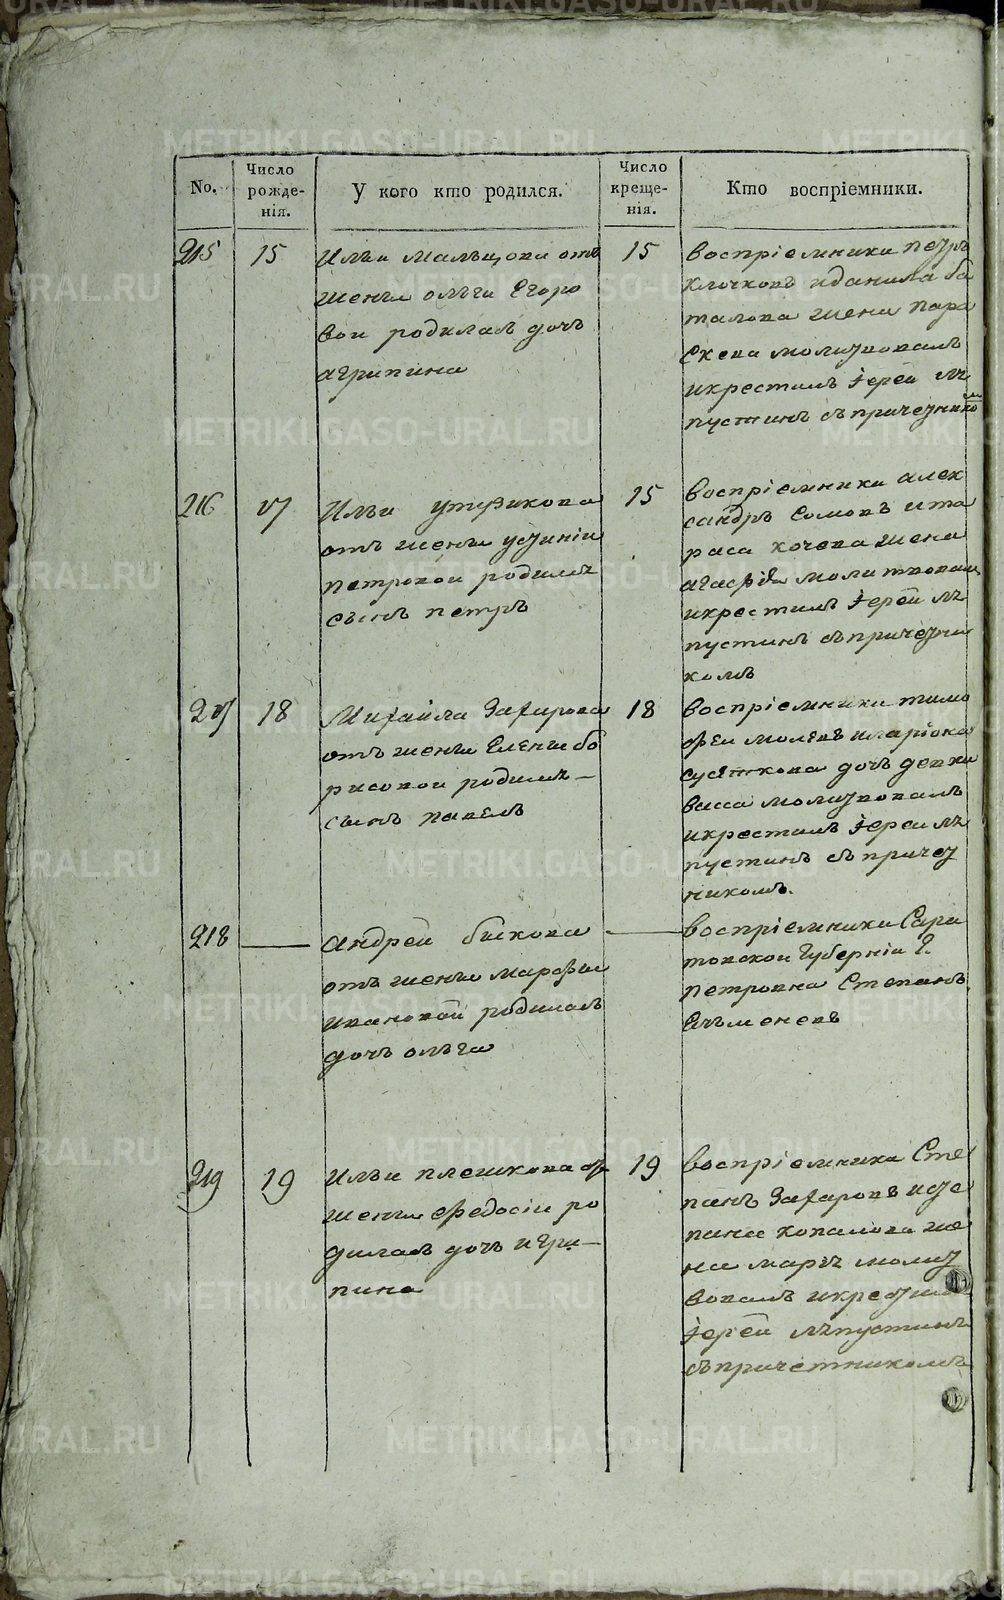 No.
Число рожде-нія.
У кого кто родился.
Число креще-нія.
Кто воспріемники.
215
15
Ильи Мальцова отъ
жены ольги Егоро
вои родилась дочь
агрипина
15
воспріемники петръ
Клочковъ иданила ба
талова жена пара
скева молитвовалъ
икрестилъ іерей ля
пустинъ съпричетнико
216
17
Ильи
отъ жены устиніи
петровои родился
сынъ петръ
15
воспріемники алек
сандръ Сомовъ ита
раса кочева жена
агафія молитвовалъ
икрестилъ іерей ля
пустинъ съпричетни
комъ
217
18
Михайла Захарова
отъ жены Елены бо
рисовои родился
сынъ павелъ
18
воспріемники тимо
фей иларіона
дочь девка
васса молитвовалъ
икрестилъ іереи ля
пустинъ съ причет
никомъ.
218
андрей быкова
отъ жены марфы
ивановой родилась
дочь ольга
воспріемники Сара
товской губерніи Г.
петровска Степанъ
219
19
Ильи плешкова отъ
жены Федосіи ро
дилась дочь агри
пина
19
воспріемники Сте
панъ Захаровъ исте
пана копалова же
на марія молит
вовалъ икрестилъ
іерей ляпустинъ
съпричетникомъ
METRIKI.GASO-URAL.RU